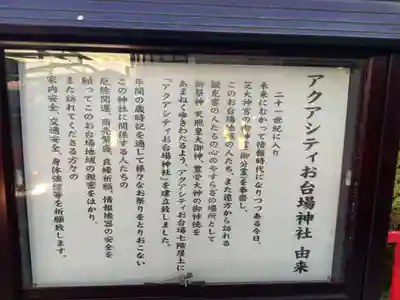 アクアシティお台場神社 由来
二十一世紀に入り
未来にむかって情報時代になりつつある今日、
芝大神宮の御神霊(御分霊)を奉斎し、
このお台場地域の人たち、また遠方から訪れる
観光客の人たちの心のやすらぎの場所として
御祭神 天照皇大御神、豊受大神の御神徳を
あまねくゆきわたるよう、アクアシティお台場七階屋上に
「アクアシティお台場神社」を建立致しました。
年間の歳時記を通じて様々なお祭りをとりおこない
この神社に関係する人たちの
厄除開運、商売繁盛、良縁祈願、情報機器の安全を
願ってこのお台場地域の親密をはかり、
また訪れてくださる方々の
家内安全、交通安全、身体健康等を祈願致します。